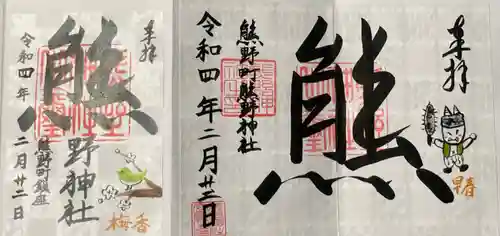 奉拝
熊野神社
熊野町鎮座
令和四年
二月廿二日
梅香
奉拝
熊
熊野町熊野神社
令和四年二月廿二日
早春